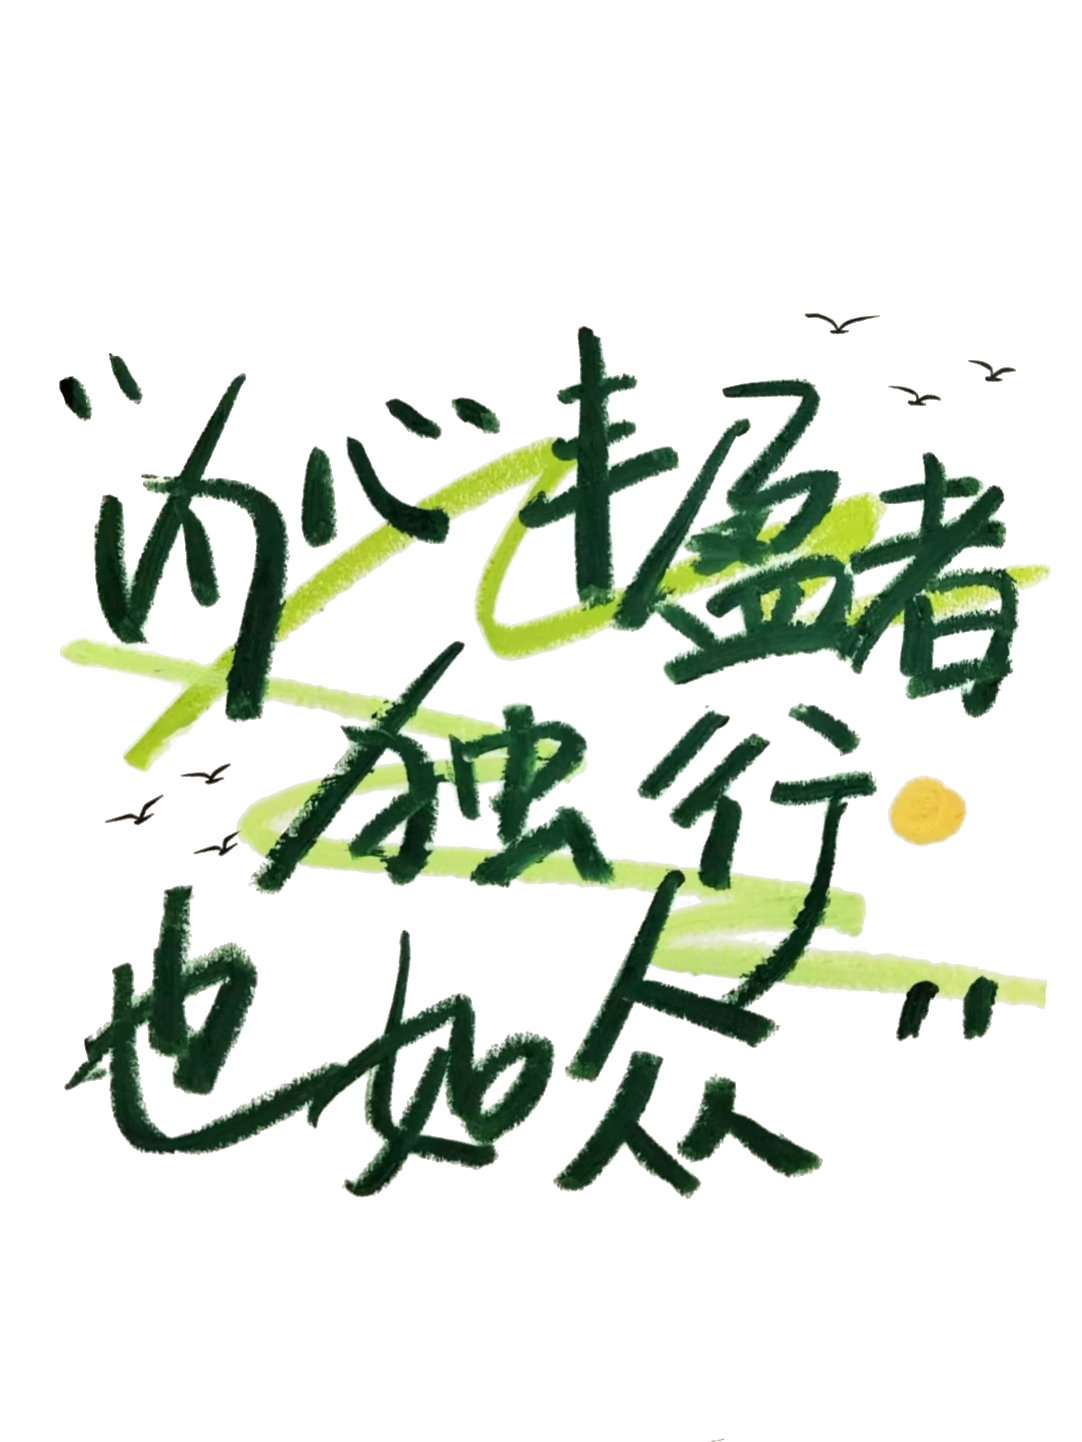 “内心丰盈者
独行
也如众”